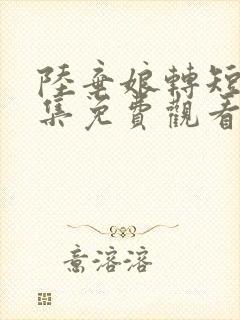 陸棄娘轉短
集免費觀看
意溶溶